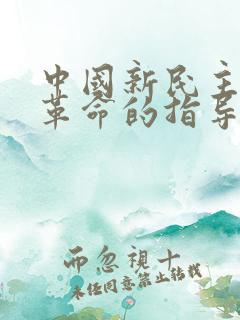 中國新民主
革命的指导
而忽視十
未经同意禁止转载